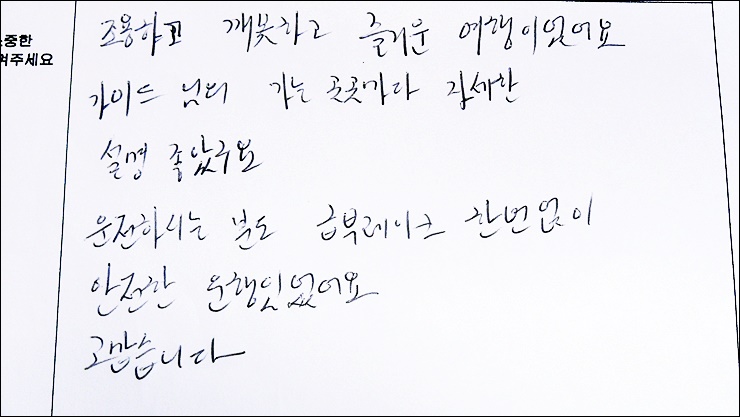 조용하고 깨끗하고 즐거운 여행이었어요
소중한
겨주세요
가이드 님의 가는 곳곳마다 자세한
설명 좋았구요
운전하시는 분도 급부레이크 한번없이
안전한 운행이었어요
고맙습니다